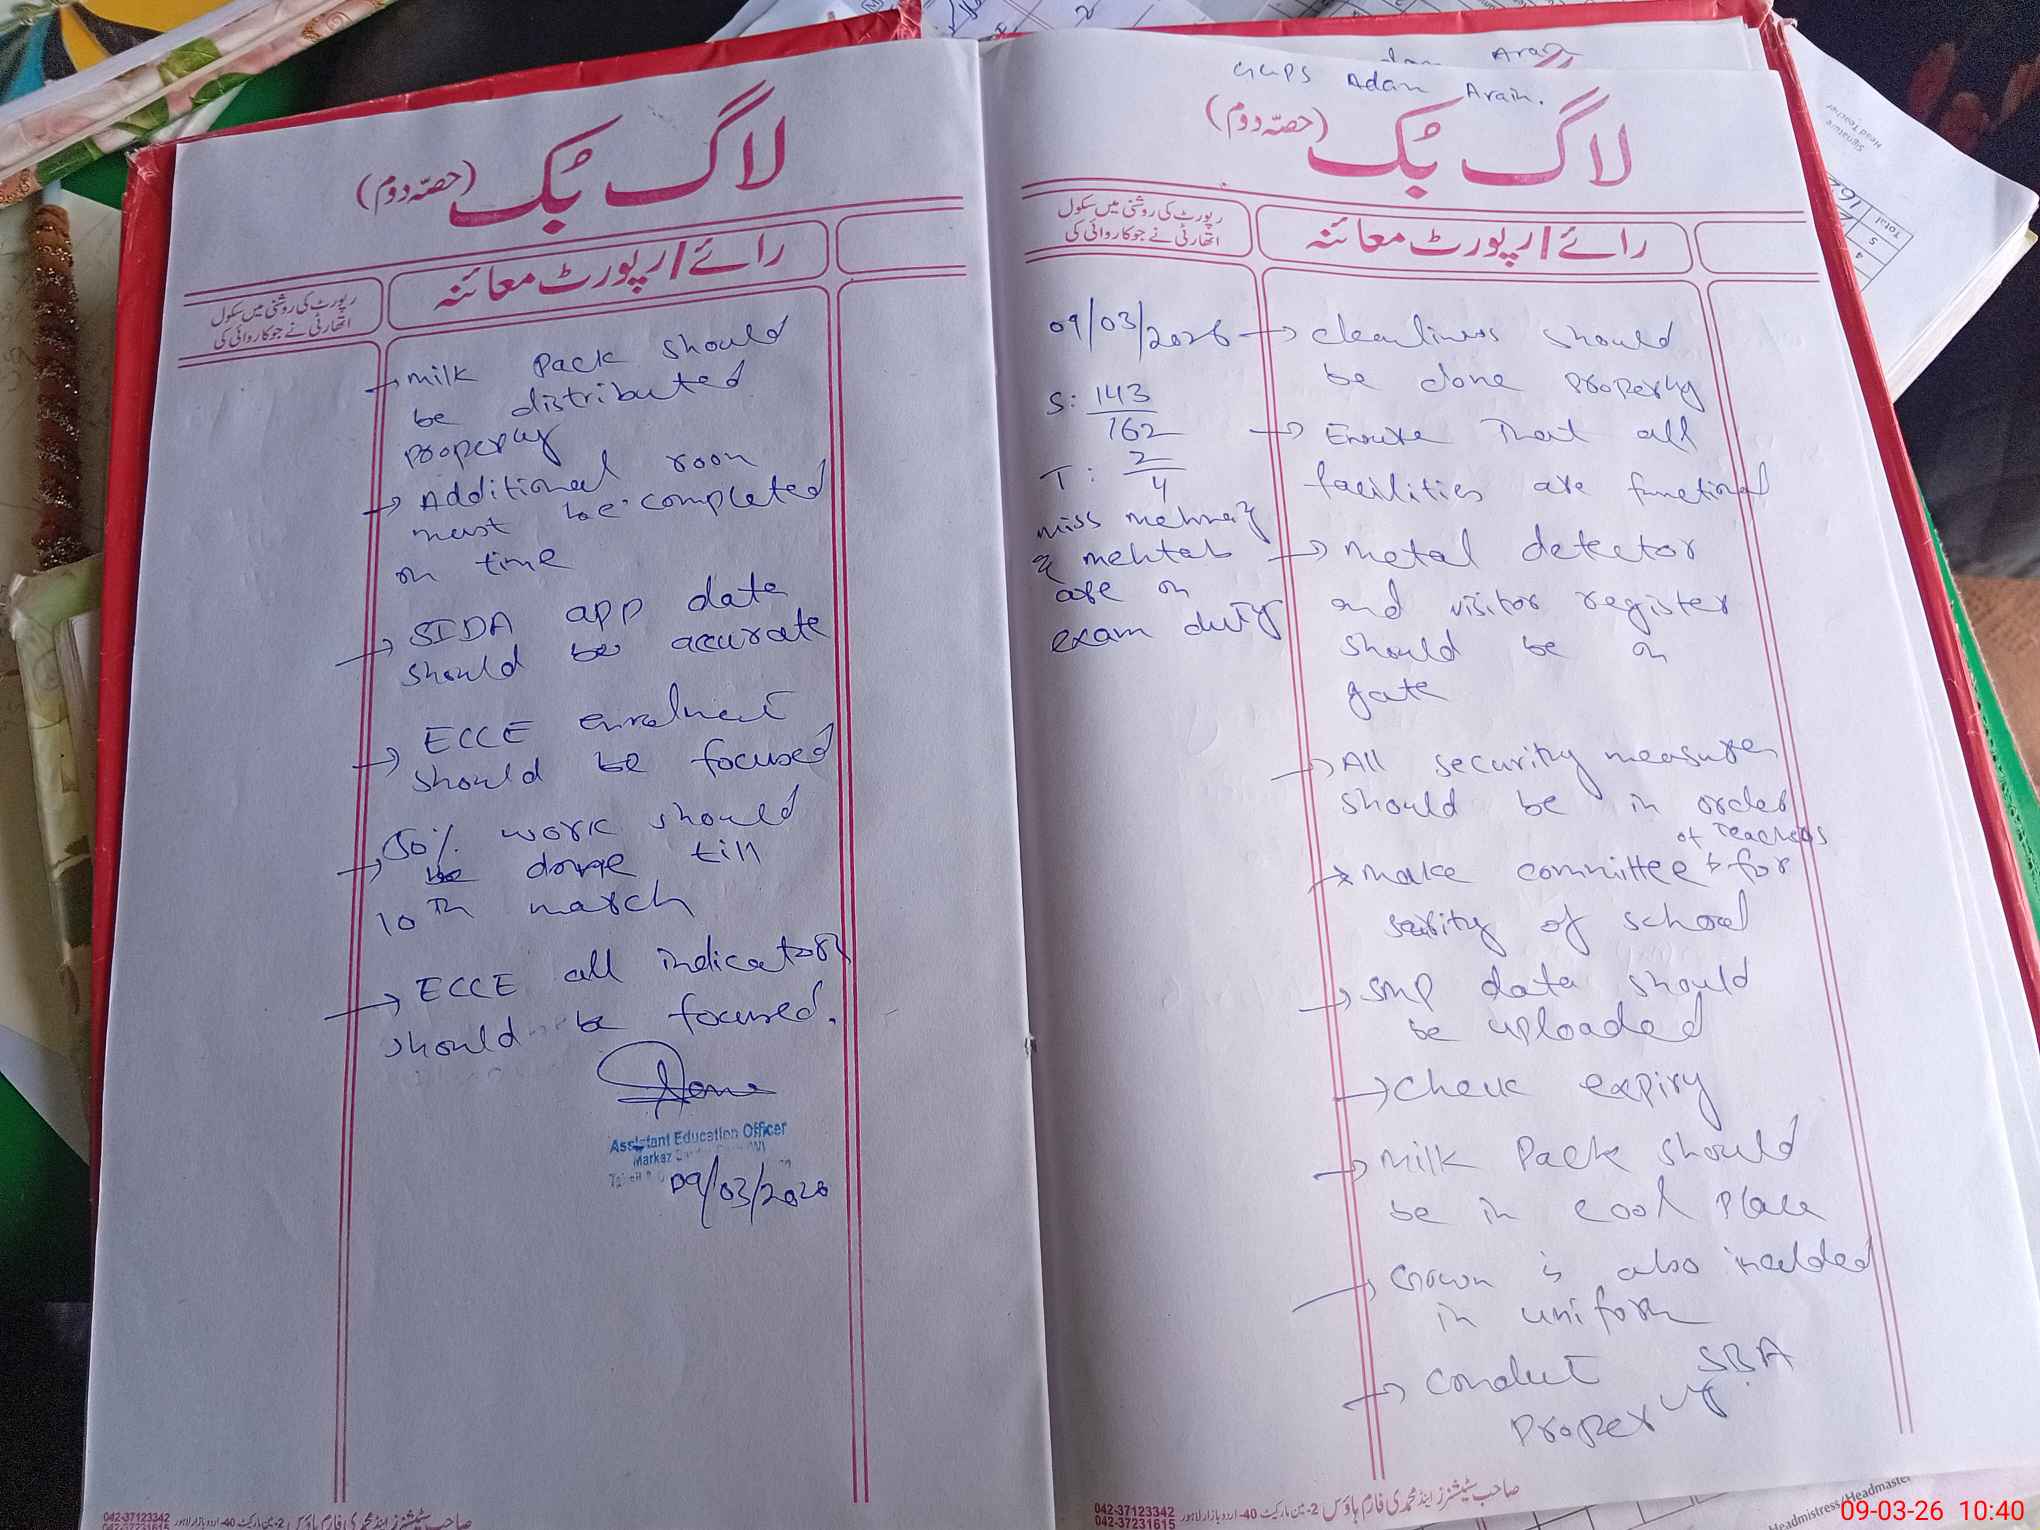 GGPS Adam Arain.
لاگ بُک (حصّہ دوم)
رائے/رپورٹ معائنہ
رپورٹ کی روشنی میں سکول
اتھارٹی نے جو کاروائی کی
09/03/2026 → cleanliness should
be done properly
S: 143
162
→ Ensure That all
facilities are functional
T: 2
4
miss mehnaz
& mehtab
are on
exam duty
→ metal detector
and visitor register
should be on
gate
→ All security measures
should be in order
of Teachers
→ make committee for
security of school
→ SMP data should
be uploaded
→ check expiry
→ milk Pack should
be in cool place
→ Crown is also included
in uniform
→ conduct SBA
properly.
042-37123342
042-37231615
صاحب سٹیشنرز اینڈ محمدی فارم ہاؤس 2-مین مارکیٹ 40-اردو بازار لاہور
لاگ بُک (حصّہ دوم)
رائے/رپورٹ معائنہ
رپورٹ کی روشنی میں سکول
اتھارٹی نے جو کاروائی کی
→ milk Pack should
be distributed
properly
→ Additional room
must be completed
on time
→ SIDA app data
should be accurate
→ ECCE enrolment
should be focused
→ 50% work should
be done till
10th march
→ ECCE all indicators
should be focused.
Assistant Education Officer
Markaz
09/03/2026
042-37123342
042-37231615
صاحب سٹیشنرز اینڈ محمدی فارم ہاؤس 2-مین مارکیٹ 40-اردو بازار لاہور
Signature
Head Teacher
Total
162
Headmistress/Headmaster
09-03-26 10:40